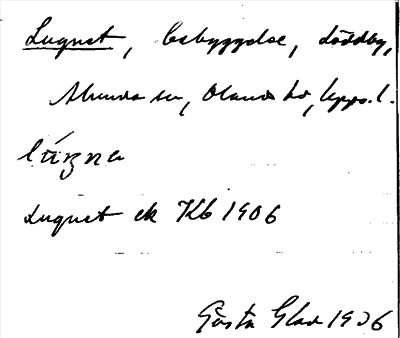 Lugnet, bebyggelse, Löddby,
Alunda sn, Olands hd, Upps. l.
Lugnet ek Kb 1906
Gösta Glad 1936